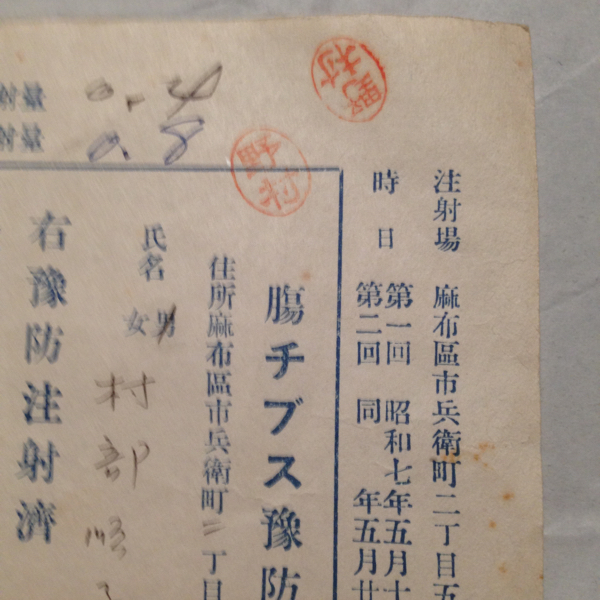 注射場 麻布區市兵衛町二丁目五
時日
第一回 昭和七年五月十
第二回 同 年五月廿
腸チブス豫防
住所麻布區市兵衛町二丁目
氏名
男
女
村部順子
右豫防注射濟
射量 0.4
射量 0.8
野村
野村